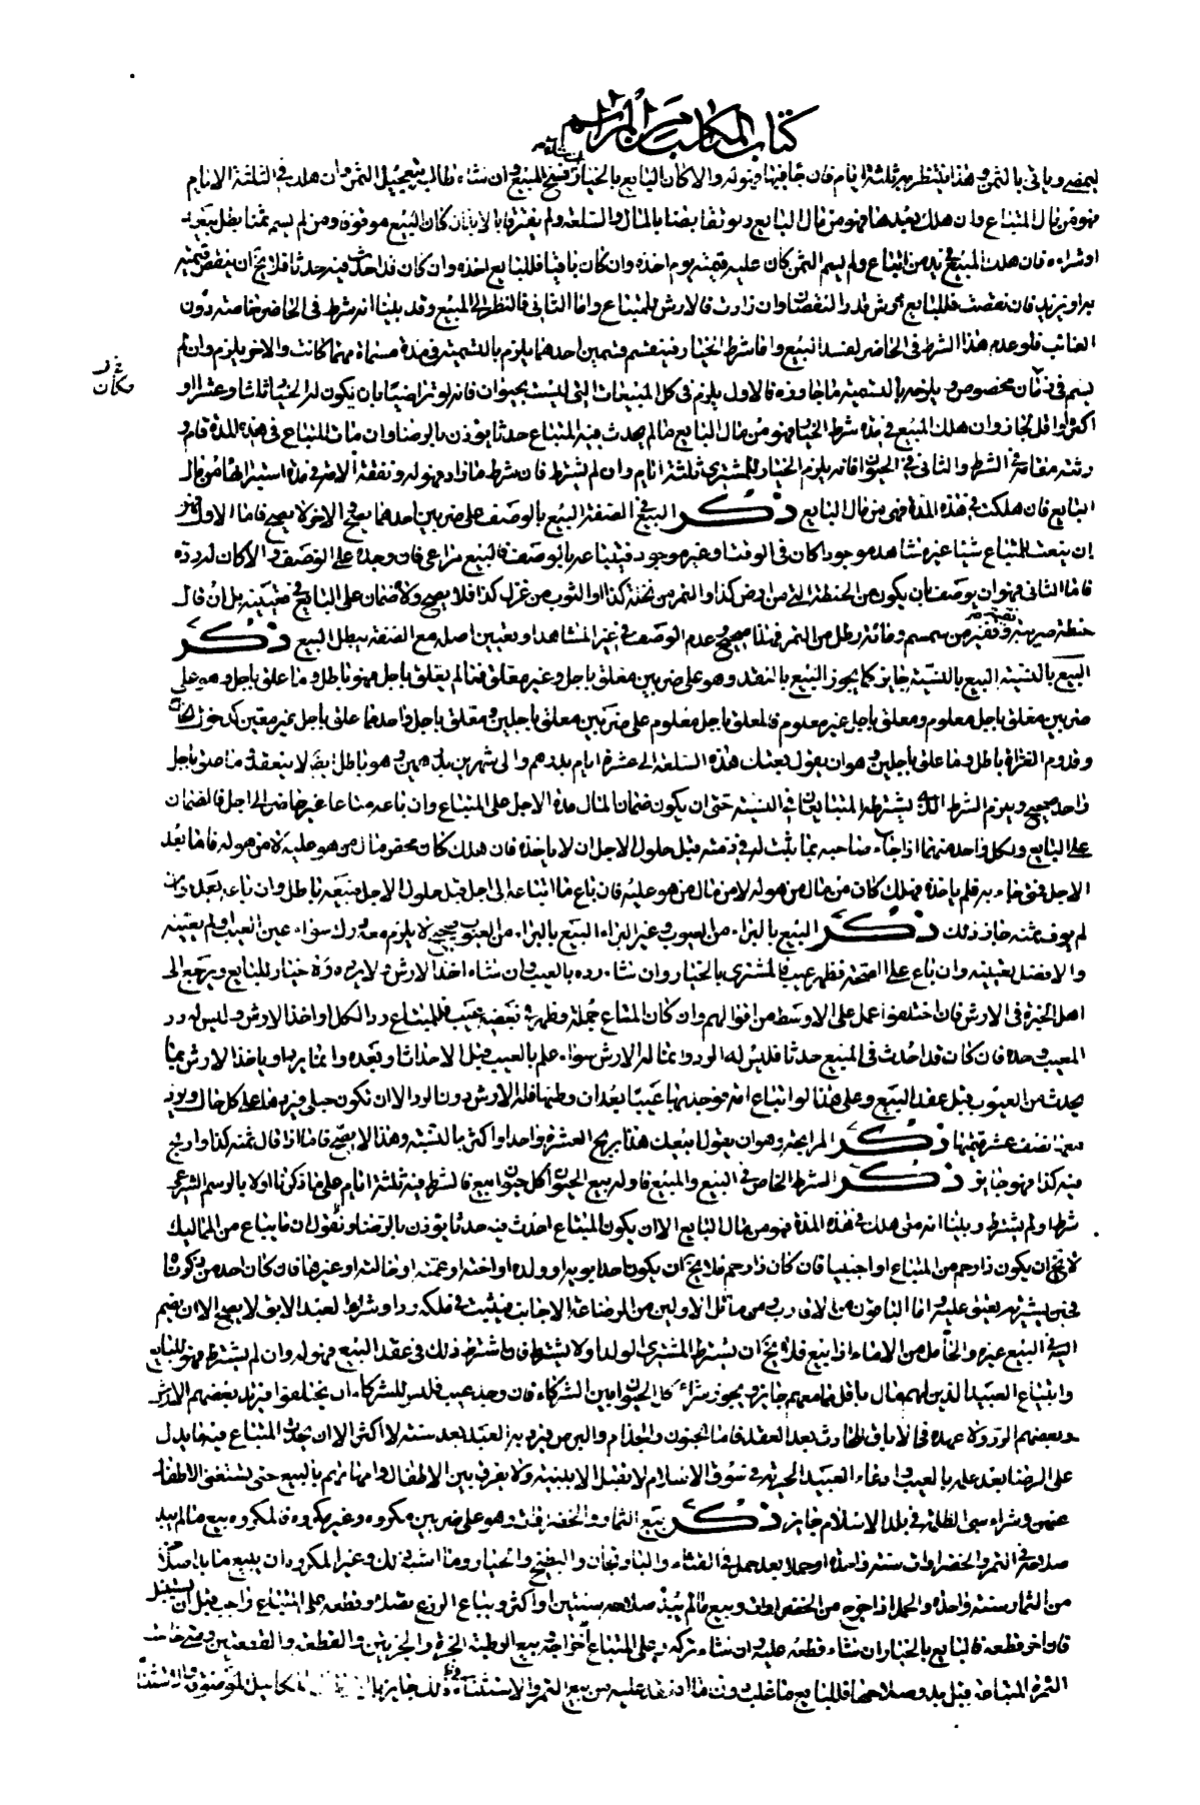 كتاب المكاسب من المراسم
ليمضي ويأتي بالثمن وهذا ينتظر به ثلثة ايام فان جاء فيها فهو له والا كان البايع بالخيار في فسخ المبيع وان شاء طالب بتعجيل الثمن وان هلك في الثلثة الايام
فهو من مال المبتاع وان هلك بعدها فهو من مال البايع ولو تقابضا بالمال والسلعة ولم يفترقا بالابدان كان البيع موقوفا ومن لم يسم ثمنا بطل بيعه
او شراءه فان هلك المبيع في يد من ابتاع ولم يسم الثمن كان عليه قيمته يوم اخذه وان كان باقيا فللبايع اخذه وان كان قد احدث فيه حدثا فلا يخ ان ينقص قيمته
به او يزيد فان نقصت فللبايع عوض قدر النقصان وان زادت فالارش للمبتاع واما الثاني فالنظر الى المبيع وقد بينا انه شرط في الحاضر خاصة دون
الغائب فلو عدم هذا الشرط في الحاضر لفسد البيع واما شرط الخيار فينقسم قسمين احدهما يلزم بالتسمية في مدة مسماة مهما كانت والاخر يلزم وان لم
غير
مكان
يسم في زمان مخصوص ويلزم بالتسمية ما جاوزه فالاول يلزم في كل المبيعات التي ليست بحيوان فانه لو تراضيا بان يكون له الخيار ثلاثا وعشرا او
اكثر او اقل لجاز وان هلك المبيع في مدة شرط الخيار فهو من مال البايع ما لم يحدث فيه المبتاع حدثا يؤذن بالرضا وان مات المبتاع في هذه المدة قام و
رثته مقامه في الشرط والثاني في الحيوان فانه يلزم الخيار للمشتري ثلثة ايام وان لم يشترط فان شرط ما زاد فهو له ونفقة الامة في مدة استبرائها من مال
البايع فان هلكت في هذه المدة فهي من مال البايع ذكر البيع في الصفة البيع بالوصف على ضربين احدهما يصح في الاخر لا يصح فاما الاول فهو
ان يبعث المبتاع شيئا غير مشاهد موجودا كان في الوقت او غير موجود فيبتاعه بالوصف فالبيع مراعى فان وجده على الوصف والا كان له رده
فاما الثاني فهو ان يوصف بان يكون من الحنطة التي من ارض كذا والتمر من نخلة كذا او الثوب من غزل كذا فلا يصح ولا ضمان على البايع في ضيعته بل ان قال
حنطة صربية وقفيز من سمسم ومائة رطل من التمر فهذا صحيح وعدم الوصف في غير المشاهد او تعيين اصله مع الصفة يبطل البيع ذكر
البيع بالنسية البيع بالنسية جايز كما يجوز البيع بالنقد وهو على ضربين معلق باجل وغير معلق فما لم يعلق باجل فهو باطل وما علق باجل وهو على
ضربين معلق باجل معلوم ومعلق باجل غير معلوم فالمعلق باجل معلوم على ضربين معلق باجلين ومعلق باجل واحد فما علق باجل غير معين كدخول الحاج
وقدوم الغزاة باطل وما علق باجلين وهو ان يقول بعتك هذه السلعة الى عشرة ايام بدرهم والى شهرين بدرهمين وهو باطل ايضا لا ينعقد وما علق باجل
واحد صحيح ويلزم الشرط الذي يشترطه المتبايعان في النسية حتى ان يكون ضمان المال مدة الاجل على المبتاع وان باعه متاعا غير حاضر الى اجل فالضمان
على البايع ولكل واحد منهما اذا جاء صاحبه بما يثبت له في ذمته قبل حلول الاجل ان لا ياخذه فان هلك كان من مال من هو عليه لا من هو له فاما بعد
الاجل فمتى جاء به فلم ياخذه فهلك كان من مال من هو له لا من مال من هو عليه فان باع ما ابتاعه الى اجل قبل حلول الاجل فبيعه باطل وان باعه بعده وان
لم يوف ثمنه جاز ذلك ذكر البيع بالبراءة من العيوب وغير البراءة البيع بالبراءة من العيوب صحيح لا يلزم معه درك سواء عين العيب او لم يعينه
والافضل تعيينه وان باع على الصحة فظهر عيب فالمشتري بالخيار وان شاء رده بالعيب وان شاء اخذ الارش ولا خيار للبايع ويرجع الى
اهل الخبرة في الارش فان اختلفوا عمل على الاوسط من اقوالهم وان كان المتاع جملة وظهر في بعضه عيب فللمبتاع رد الكل او اخذ الارش وليس له رد
المعيب وحده فان كان قد احدث في المبيع حدثا فليس له الرد وانما له الارش سواء علم بالعيب قبل الاحداث او بعده وانما يرد او ياخذ الارش بما
يحدث من العيوب قبل عقد البيع وعلى هذا لو ابتاع امة فوجد بها عيبا بعد ان وطئها فله الارش دون الرد الا ان تكون حبلى فيردها على كل حال ويرد
معها نصف عشر قيمتها ذكر المرابحة وهو ان يقول ابيعك هذا بربح العشرة واحدا او اكثر بالنسية وهذا لا يصح فاما اذا قال ثمنه كذا واربح
فيه كذا فهو جايز ذكر الشرط الخاص في البيع والمبيع فاوله بيع الحيوان كل حيوان بيع فالشرط فيه ثلثة ايام على ما ذكرنا اولا بالرسم الشرعي
شرط او لم يشترط وبينا انه متى هلك في هذه المدة فهو من مال البايع الا ان يكون المبتاع احدث فيه حدثا يؤذن بالرضا ونقول ان ما يبتاع من المماليك
لا يخ ان يكون ذا رحم من المبتاع او اجنبيا فان كان ذا رحم فلا يخ ان يكون احد ابويه او ولده او اخته او عمته او خالته او غيرها فان كان احد من ذكرنا
فحين يشتريه يعتق عليه اما الباقون من الاقارب ومن ماثل الاولين من الرضاعة الاجانب فيثبت في ملكه رد او شراء العبد الابق لا يصح الا ان يضم
اليه في البيع غيره والحامل من الاماء اذا بيع فلا يخ ان يشترط المشتري الولد او لا يشترط فان اشترط ذلك في عقد البيع فهو له وان لم يشترط فهو للبايع
وابتياع العبيد الذين لهم مال باقل مما معهم جايز ويجوز شراء الحيوان بين الشركاء فان وجد عيب فليس للشركاء ان يختلفوا فيريد بعضهم الارش
وبعضهم الرد ولا عهدة في الاباق الحادث بعد العقد فاما الجنون والجذام والبرص فيرد به العبد بعد سنة لا اكثر الا ان يحدث المبتاع فيه ما يدل
على الرضا بعد علمه بالعيب وادعاء العبيد الحرية في سوق الاسلام لا يقبل الا ببينة ولا يفرق بين الاطفال وامهاتهم بالبيع حتى يستغنى الاطفال
عنهن وشراء سبي الظالمة في بلد الاسلام جايز ذكر بيع الثمار والخضراوات وهو على ضربين مكروه وغير مكروه فالمكروه بيع ما لم يبد
صلاحه في الثمر والخضراوات سنة واحدة او حملا بعد حمل في القثاء والباذنجان والبطيخ والخيار وما اشبه ذلك وغير المكروه ان يبيع ما بدا صلاحه
من الثمار سنة واحدة والحمل اذا خرج من الخضراوات وبيع ما لم يبد صلاحه سنتين او اكثر ويبتاع الزرع بقصله وقطعه على المبتاع واجب قبل ان يسنبل
فان اخر قطعة فالبايع بالخيار ان شاء قطعه عليه وان شاء تركه وعلى المبتاع اخراجه وبيع الرطبة الجزة والجزتين والقطعة والقطعتين ومتى خاست
الثمرة المبتاعة قبل بدو صلاحها فللبايع ما غلب دون ما انعقد عليه من بيع الثمر والاستثناء في ذلك جايز